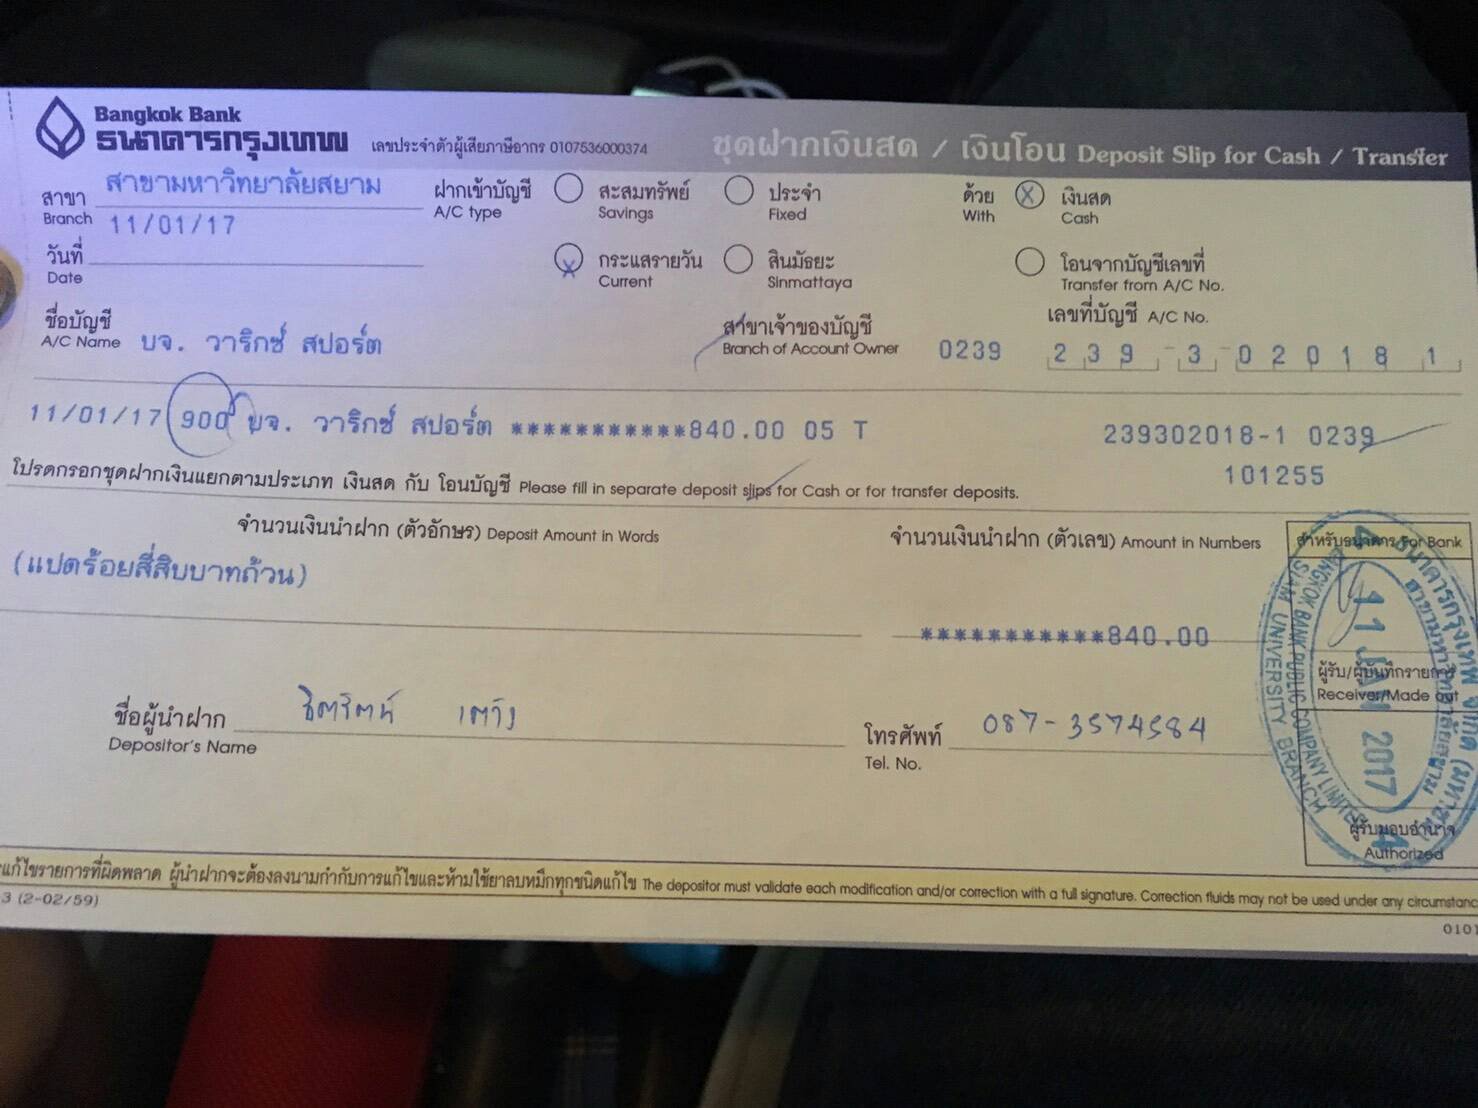 Bangkok Bank
ธนาคารกรุงเทพ เลขประจำตัวผู้เสียภาษีอากร 0107536000374
ชุดฝากเงินสด / เงินโอน Deposit Slip for Cash / Transfer
สาขา สาขามหาวิทยาลัยสยาม
Branch 11/01/17
วันที่
Date
ฝากเข้าบัญชี สะสมทรัพย์ ประจำ
A/C type Savings Fixed
กระแสรายวัน สินมัธยะ
Current Sinmattaya
ด้วย X เงินสด
With Cash
X
โอนจากบัญชีเลขที่
Transfer from A/C No.
ชื่อบัญชี
A/C Name บจ. วาริกซ์ สปอร์ต
สาขาเจ้าของบัญชี
Branch of Account Owner 0239
เลขที่บัญชี A/C No.
2 3 9 - 3 - 0 2 0 1 8 1
11/01/17 900 บจ. วาริกซ์ สปอร์ต ***********840.00 05 T 239302018-1 0239
101255
โปรดกรอกชุดฝากเงินแยกตามประเภท เงินสด กับ โอนบัญชี Please fill in separate deposit slips for Cash or for transfer deposits.
จำนวนเงินนำฝาก (ตัวอักษร) Deposit Amount in Words
(แปดร้อยสี่สิบบาทถ้วน)
จำนวนเงินนำฝาก (ตัวเลข) Amount in Numbers
***********840.00
สำหรับธนาคาร For Bank
ผู้รับ/ผู้บันทึกรายการ
Receiver/Made out
ผู้รับมอบอำนาจ
Authorized
ธนาคารกรุงเทพ จำกัด (มหาชน)
สาขามหาวิทยาลัยสยาม
11 JAN 2017
BANGKOK BANK PUBLIC COMPANY LIMITED
SIAM UNIVERSITY BRANCH
ชื่อผู้นำฝาก
Depositor's Name
โทรศัพท์ 087-3574584
Tel. No.
แก้ไขรายการที่ผิดพลาด ผู้นำฝากจะต้องลงนามกำกับการแก้ไขและห้ามใช้ยาลบหมึกทุกชนิดแก้ไข The depositor must validate each modification and/or correction with a full signature. Correction fluids may not be used under any circumstanc
3 (2-02/59)
0101